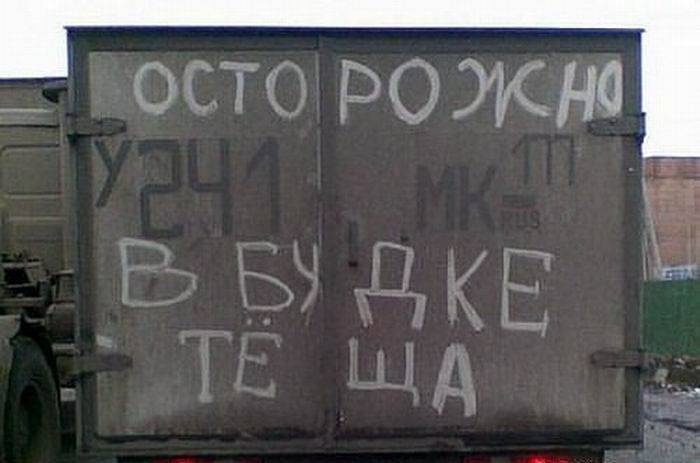 ОСТОРОЖНО
У241 МК 177
RUS
В БУДКЕ
ТЁЩА